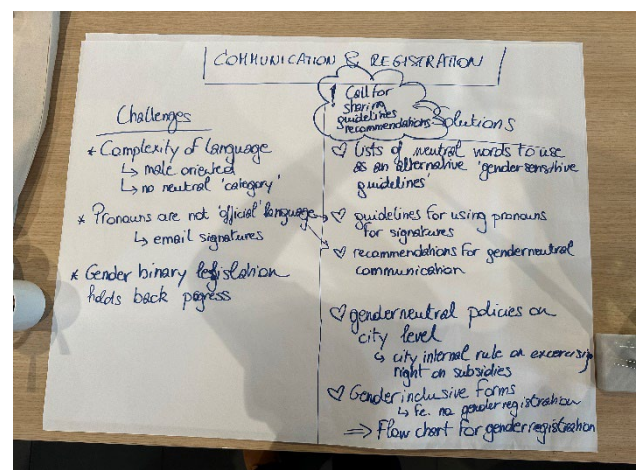 COMMUNICATION & REGISTRATION
! Call for
sharing
guidelines
recommendations
Challenges
* Complexity of language
↳ male oriented
↳ no neutral 'category'
* Pronouns are not 'official' language
↳ email signatures
* Gender binary legislation
holds back progress
Solutions
♡ Lists of neutral words to use
as an alternative 'gendersensitive
guidelines'
♡ guidelines for using pronouns
for signatures
♡ recommendations for genderneutral
communication
♡ genderneutral policies on
city level
↳ city internal rule on excercising
right on subsidies
♡ Gender inclusive forms
↳ f.e. no gender registration
⇒ Flow chart for gender registration